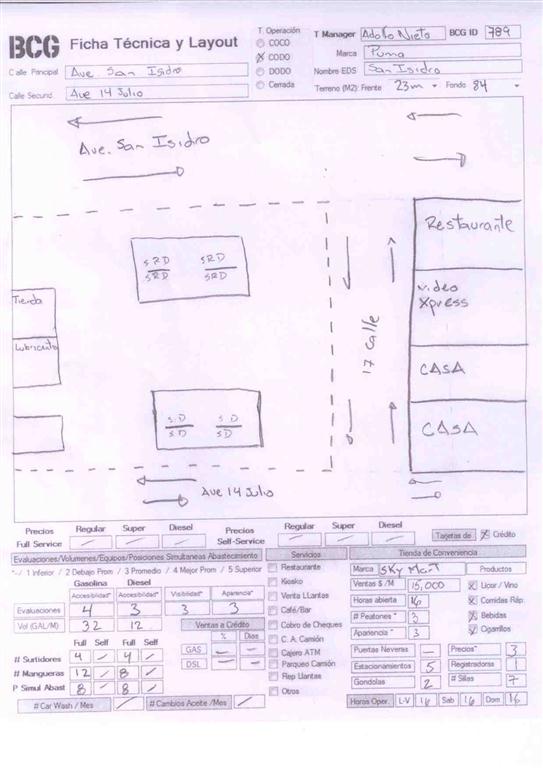 BCG Ficha Técnica y Layout
T. Operación
COCO
CODO
DODO
Cerrada
T Manager Adolfo Nieto BCG ID 789
Marca Puma
Nombre EDS San Isidro
Terreno (M2): Frente 23m Fondo 84
Calle Principal Ave. San Isidro
Calle Secund. Ave 14 Julio
Ave. San Isidro
Restaurante
SRD SRD
SRD SRD
video
Xpress
Tienda
Lubricante
17 Calle
CASA
S.D S.D
S.D SD
CASA
Ave 14 Julio
Precios Regular Super Diesel
Full Service
Precios Regular Super Diesel
Self-Service
Tarjetas de Crédito
Evaluaciones/Volumenes/Equipos/Posiciones Simultaneas Abastecimiento
*-/ 1 Inferior / 2 Debajo Prom / 3 Promedio / 4 Mejor Prom / 5 Superior
Gasolina Diesel
Accesibilidad* Accesibilidad* Visibilidad* Apariencia*
Evaluaciones 4 3 3 3
Vol (GAL/M) 32 12
Ventas a Crédito
% Dias
GAS
DSL
Full Self Full Self
# Surtidores 4 4
# Mangueras 12 8
P Simul Abast 8 8
# Car Wash / Mes
# Cambios Aceite /Mes
Servicios
Restaurante
Kiosko
Venta LLantas
Café/Bar
Cobro de Cheques
C. A. Camión
Cajero ATM
Parqueo Camión
Rep Llantas
Otros
Tienda de Conveniencia
Marca Sky Mart Productos
Ventas $ /M 15,000 Licor / Vino
Horas abierta 16 Comidas Ráp.
# Peatones * 3 Bebidas
Apariencia * 3 Cigarrillos
Puertas Neveras Precios* 3
Estacionamientos 5 Registradoras 1
Gondolas 2 # Sillas 7
Horas Oper. L-V 16 Sab 16 Dom 16